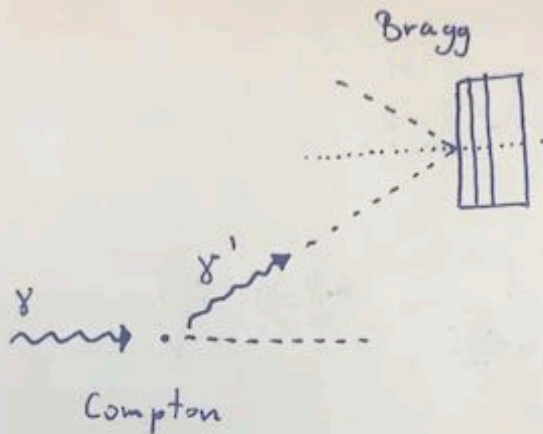 Bragg
γ'
γ
Compton